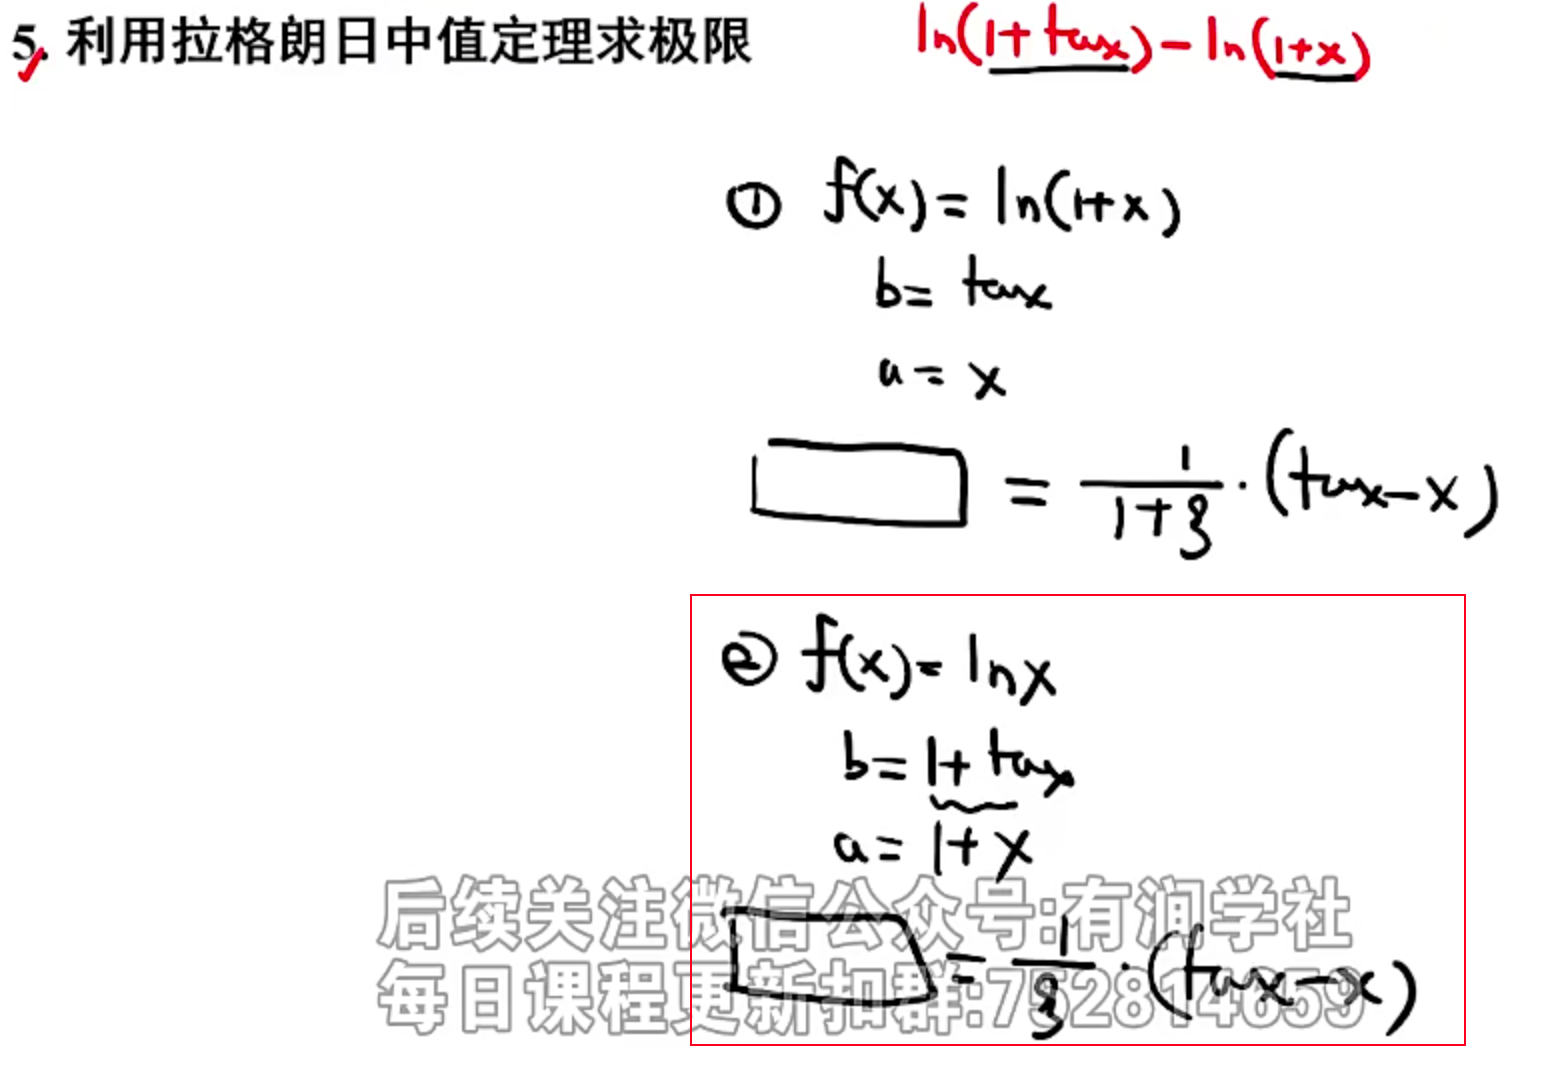 5. 利用拉格朗日中值定理求极限
ln(1+tanx)-ln(1+x)
① f(x)=ln(1+x)
b=tanx
a=x
=1/(1+ξ)·(tanx-x)
② f(x)=lnx
b=1+tanx
a=1+x
后续关注微信公众号:有润学社
=1/ξ·(tanx-x)
每日课程更新扣群:752814659